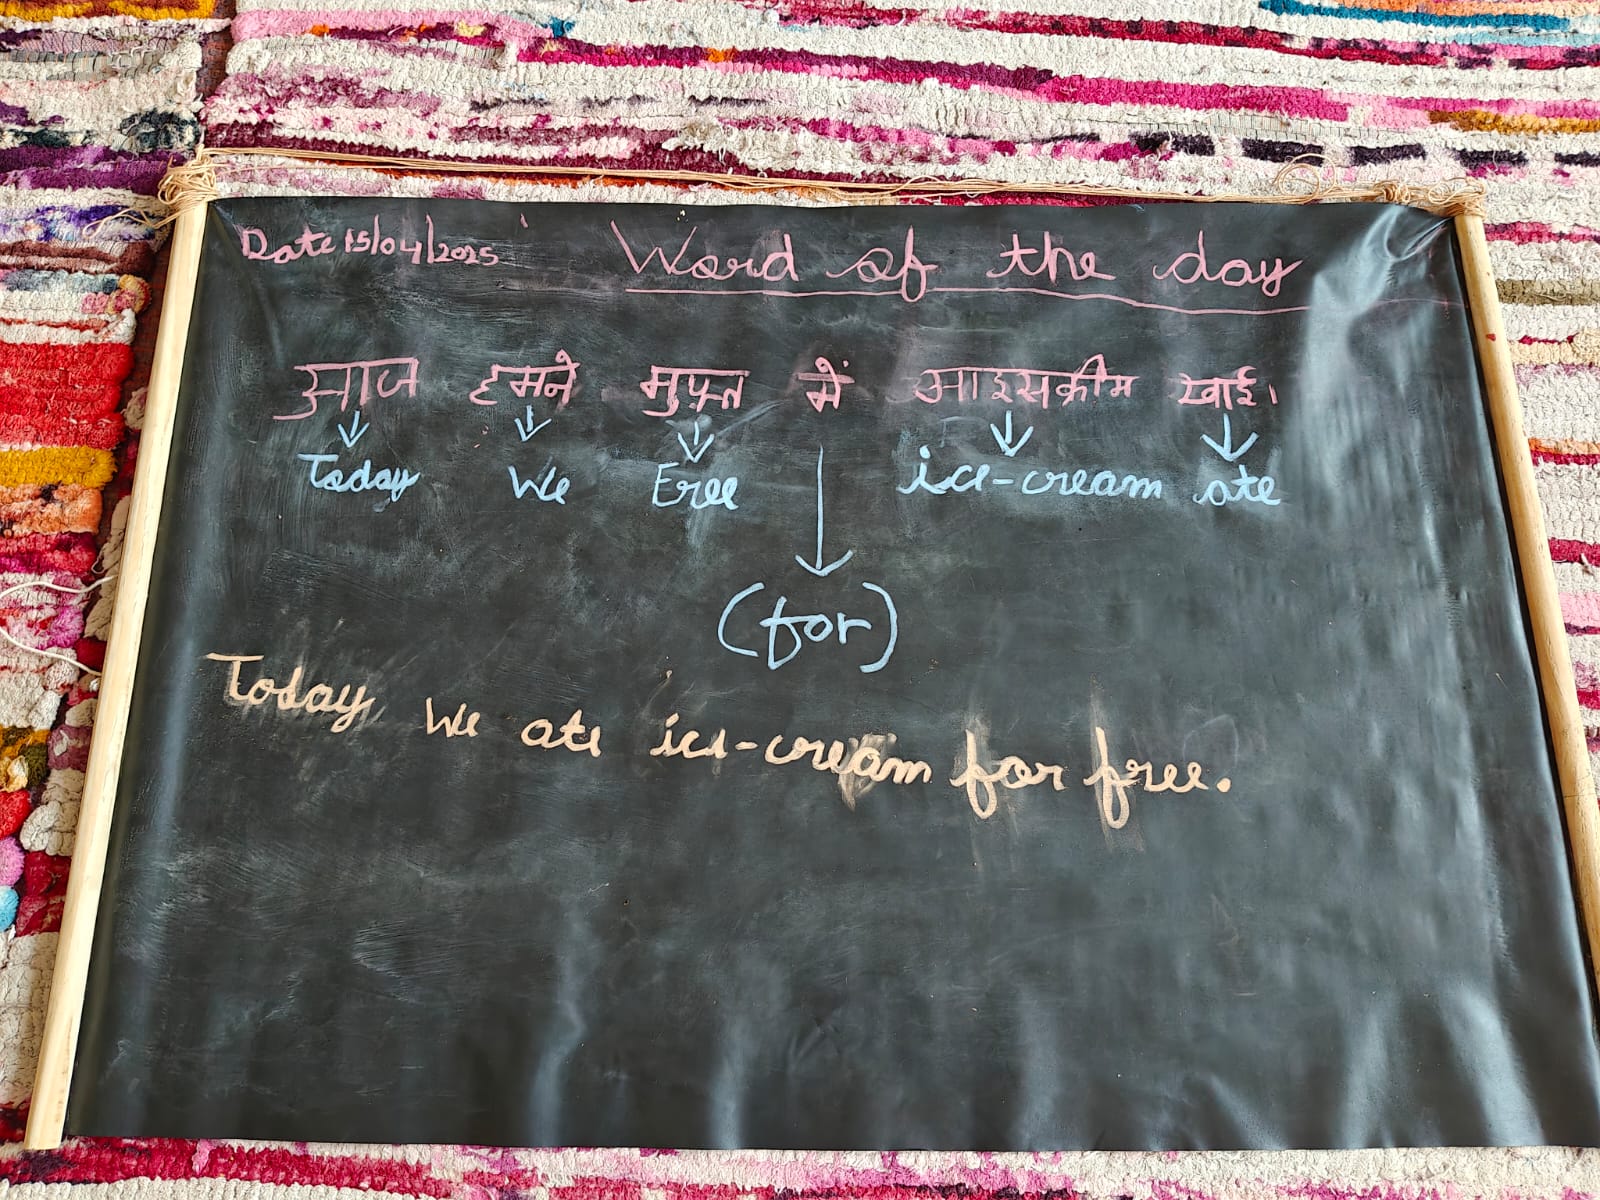 Date 15/04/2025 Word of the day
आज हमने मुफ़्त में आइसक्रीम खाई।
Today We Free ice-cream ate
(for)
Today We ate ice-cream for free.